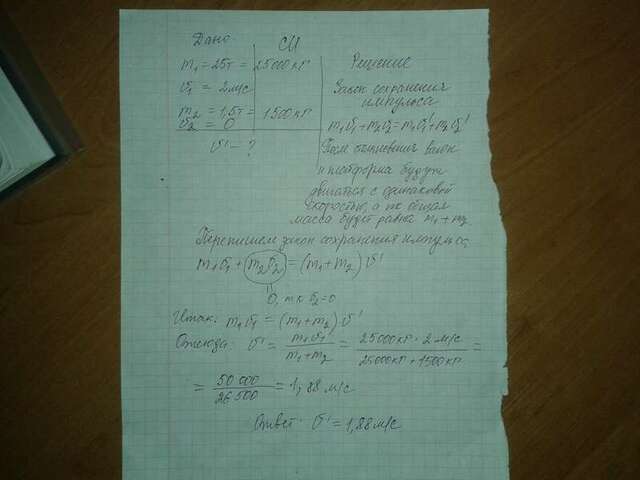 Дано
СИ
m₁ = 25т = 25000 кг
Решение
v₁ = 2 м/с
Закон сохранения
импульса
m₂ = 1,5т = 1500 кг
v₂ = 0
m₁v₁ + m₂v₂ = m₁v₁' + m₂v₂'
v' - ?
После сцепления вагон
и платформа будут
двигаться с одинаковой
скоростью, а их общая
масса будет равна m₁ + m₂
Перепишем закон сохранения импульса
m₁v₁ + m₂v₂ = (m₁ + m₂) v'
0, т.к v₂ = 0
Итак: m₁v₁ = (m₁ + m₂) v'
Отсюда: v' = m₁v₁ / m₁ + m₂ = 25000 кг · 2 м/с / 25000 кг + 1500 кг =
= 50 000 / 26 500 = 1,88 м/с
Ответ: v' = 1,88 м/с